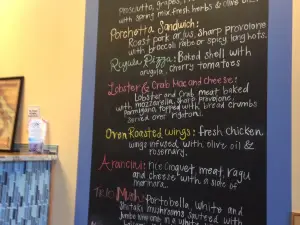 Prosciutto, grapes,
with spring mix fresh herbs & olive oil
Porchetta Sandwich:
Roast pork au jus, sharp provolone
with broccoli rabe or spicy long hots.
Baked shell with
arugula, cherry tomatoes
Lobster & Crab Mac and Cheese:
Lobster and Crab meat baked
with mozzarella, sharp provolone,
parmigiano, topped with bread crumbs
served over rigatoni.
Oven Roasted Wings: fresh chicken
wings infused with olive oil &
rosemary.
Arancini: rice croquet, meat, ragu
and cheese with a side of
marinara.
Portobella, White and
Shitaki mushrooms sauteed with
in a white